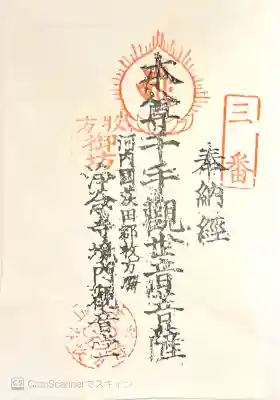 三番
奉納經
本尊千手觀世音菩薩
河内國茨田郡枚方宿
枚方御坊
浄念寺境内観音堂
CS CamScannerでスキャン